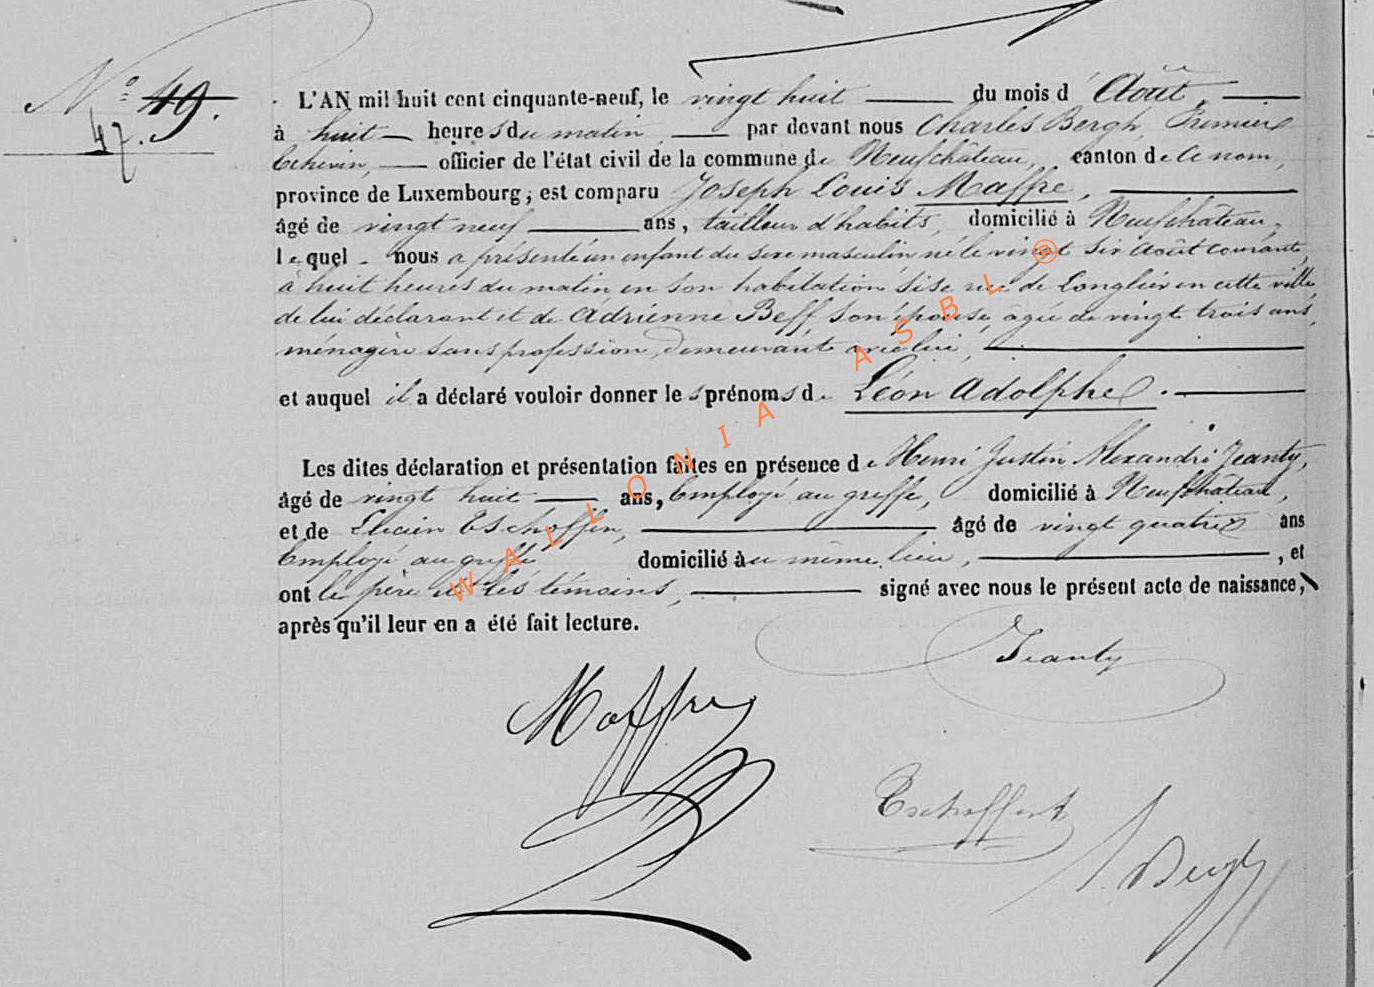 N° 49.
47.
L'AN mil huit cent cinquante-neuf, le vingt huit du mois d' Août,
à huit heures du matin par devant nous Charles Bergh, Premier
Echevin, officier de l'état civil de la commune de Neufchâteau, canton de ce nom,
province de Luxembourg; est comparu Joseph Louis Maffre,
âgé de vingt neuf ans, tailleur d'habits, domicilié à Neufchâteau,
lequel nous a présenté un enfant du sexe masculin né le vingt six Août courant,
à huit heures du matin en son habitation sise rue de Longlier en cette ville
de lui déclarant et de Adrienne Beff, son épouse, âgée de vingt trois ans,
ménagère sans profession, demeurant avec lui,
et auquel il a déclaré vouloir donner les prénoms de Léon Adolphe.
Les dites déclaration et présentation faites en présence de Henri Justin Alexandre Jeanty,
âgé de vingt huit ans, Employé au greffe, domicilié à Neufchâteau,
et de Lucien Eschoffen, âgé de vingt quatre ans
Employé au greffe domicilié au même lieu, , et
ont le père et les témoins, signé avec nous le présent acte de naissance,
après qu'il leur en a été fait lecture.
Jeanty
Maffre
Tschoffen
Bergh
WALLONIA ASBL ®